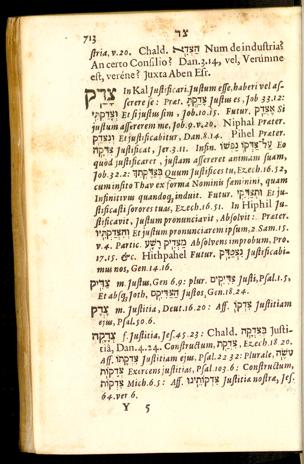 713 צד
stria, v.20. Chald. הַצְדָּא Num de industria?
An certo Consilio? Dan.3.14, vel, Verúmne
est, veréne? Juxta Aben Esr.
צָדַק In Kal Justificari, Justum esse, haberi vel as-
serere je: Præt. צָדַקְתִּי Justus es, Job 33.12:
Et si justus sim, Job.10.15. Futur. אֶצְדָּק Si
justum assererem me, Job.9. v.20. Niphal Præter.
וְנִצְדַּק Et justificabitur, Dan.8.14. Pihel Præter.
צִדְּקָה Justificat, Jer.3.11. Infin. עַל צַדְּקוֹ נַפְשׁוֹ Eo
quod justificaret, justam assereret animam suam,
Job.32.2: בְּצַדֶּקְתֵּךְ Quum Justifices tu, Ezech.16.52,
cum insito Thav ex forma Nominis fæminini, quam
Infinitivus quandoq; induit. Futur. וַתְּצַדְּקִי Et ju-
stificasti sorores tuas, Ezech.16.51. In Hiphil Ju-
stificavit, Justum pronunciavit, Absolvit: Præter.
וְהִצְדַּקְתִּיו Et justum pronunciarem ipsum, 2 Sam.15.
v.4. Partic. מַצְדִּיק רָשָׁע Absolvens improbum, Pro.
17.15. &c. Hithpahel Futur. נִצְטַדָּק Justificabi-
mus nos, Gen.14.16.
צַדִּיק m. Justus, Gen 6.9: plur. צַדִּיקִים Justi, Psal.1.5,
Et absq; Joth, הַצַּדִּיקִם Justos, Gen.18.24.
צֶדֶק m. Justitia, Deut.16.20: Aff. צִדְקוֹ Justitiam
ejus, Psal.50.6.
צְדָקָה f. Justitia, Jes.45.23: Chald. בְּצִדְקָה Justi-
tiâ, Dan.4.24. Constructum, צִדְקַת, Ezech.18.20.
Aff. צִדְקָתוֹ Justitiam ejus, Psal.22 32: Plurale, עֹשֵׂה
צְדָקוֹת Exercens justitias, Psal.103.6: Constructum,
צִדְקוֹת Mich.6.5: Aff. צִדְקוֹתֵינוּ Justitiæ nostræ, Jes.
64. ver 6.
Y 5